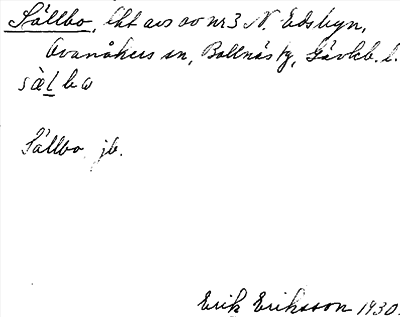 Sällbo, lht avs av nr 3 N. Edsbyn,
Ovanåkers sn, Bollnäs tg, Gävleb. l.
sä̀l bω
Sällbo jb.
Erik Eriksson 1930.